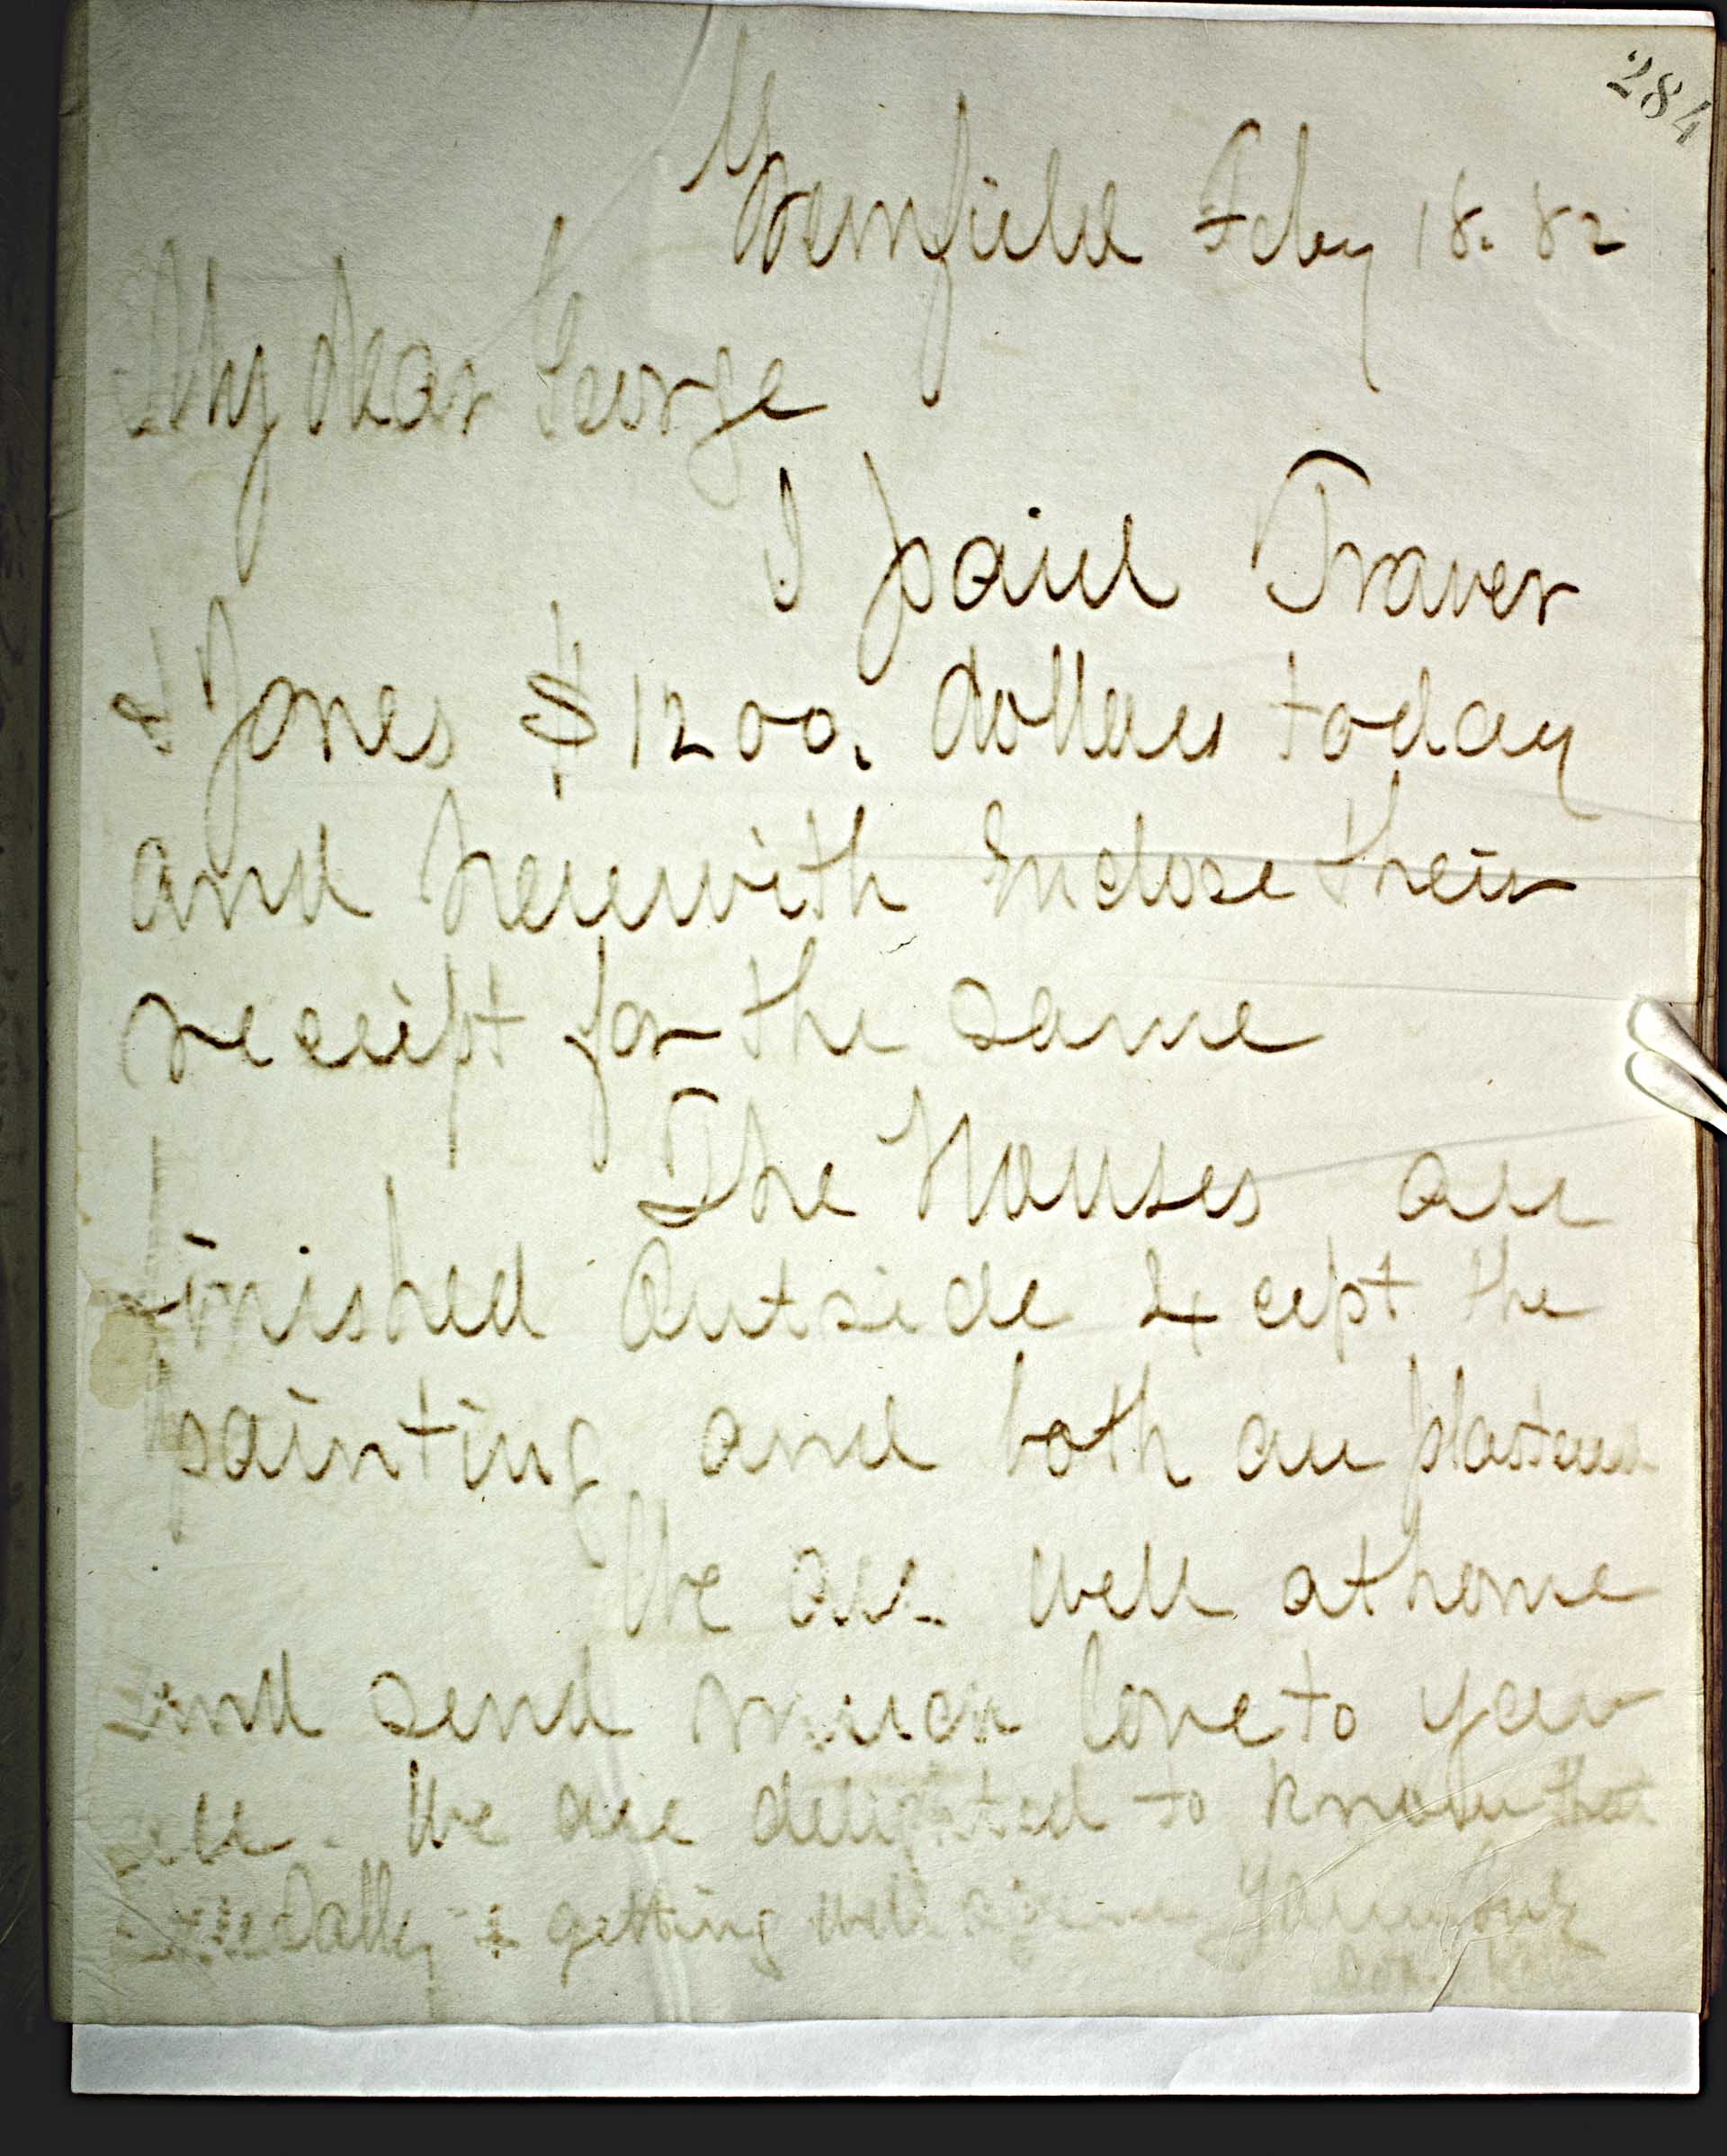 284
Greenfield Feby 18. 82
My dear George
I paid Traver
& Jones $1200. dollars today
and herewith Enclose their
receipt for the same
The Houses are
finished Outside Except the
painting and both are plastered
We are well at home
and send much love to you
all. We are delighted to know that
Sally is getting well again Your